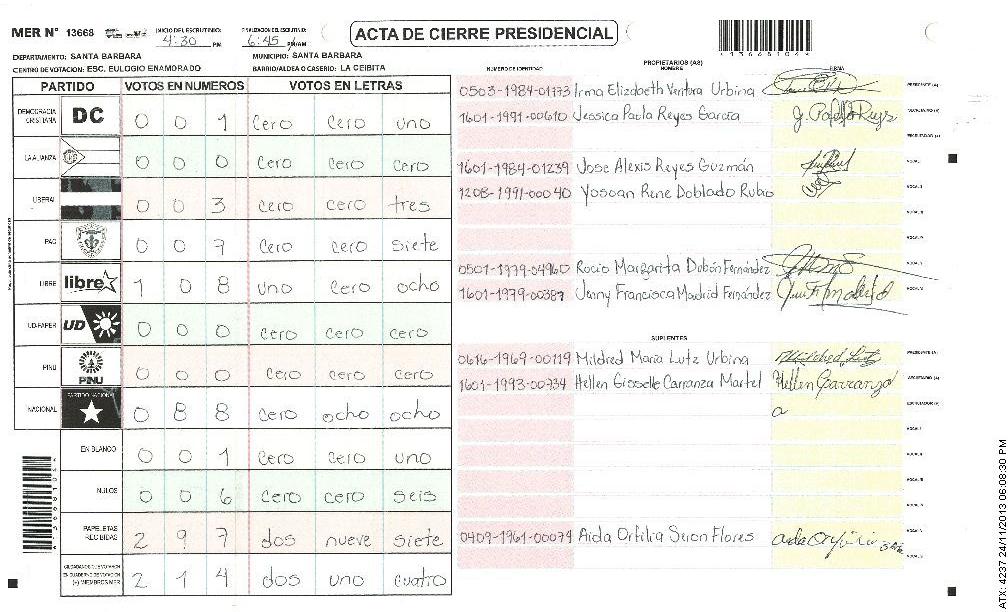 MER N° 13668
INICIO DEL ESCRUTINIO: 4:30 PM
FINALIZACION DEL ESCRUTINIO: 6:45 PM/AM
ACTA DE CIERRE PRESIDENCIAL
*13668104*
DEPARTAMENTO: SANTA BARBARA
MUNICIPIO: SANTA BARBARA
CENTRO DE VOTACION: ESC. EULOGIO ENAMORADO
BARRIO/ALDEA O CASERIO: LA CEIBITA
PARTIDO VOTOS EN NUMEROS VOTOS EN LETRAS
DEMOCRACIA CRISTIANA DC 0 0 1 cero cero uno
LA ALIANZA 0 0 0 cero cero cero
LIBERAL 0 0 3 cero cero tres
PAC 0 0 7 cero cero siete
LIBRE libre 1 0 8 uno cero ocho
UD-FAPER UD 0 0 0 cero cero cero
PINU PINU 0 0 0 cero cero cero
NACIONAL PARTIDO NACIONAL 0 8 8 cero ocho ocho
EN BLANCO 0 0 1 cero cero uno
NULOS 0 0 6 cero cero seis
PAPELETAS RECIBIDAS 2 9 7 dos nueve siete
CIUDADANOS QUE VOTARON EN CUADERNO DE VOTACION (+) MIEMBROS MER 2 1 4 dos uno cuatro
PROPIETARIOS (AS)
NUMERO DE IDENTIDAD NOMBRE FIRMA
0503-1984-01773 Irma Elizabeth Ventura Urbina PRESIDENTE (A)
1601-1991-00610 Jessica Paola Reyes García SECRETARIO (A)
ESCRUTADOR (A)
1601-1984-01239 Jose Alexis Reyes Guzmán VOCAL I
1208-1991-00040 Yosoan Rene Doblado Rubio VOCAL II
VOCAL III
VOCAL IV
0501-1979-04960 Rocio Margarita Dubón Fernández VOCAL V
1601-1979-00387 Jenny Francisca Madrid Fernández VOCAL VI
SUPLENTES
0616-1969-00119 Mildred Maria Lutz Urbina Mildred Lutz PRESIDENTE (A)
1601-1993-00734 Hellen Gisselle Carranza Martel Hellen Carranza SECRETARIO (A)
ESCRUTADOR (A)
VOCAL I
VOCAL II
VOCAL III
VOCAL IV
0409-1961-00079 Aida Orfilia Seron Flores VOCAL V
VOCAL VI
ATX: 4237 24/11/2013 06:08:30 PM